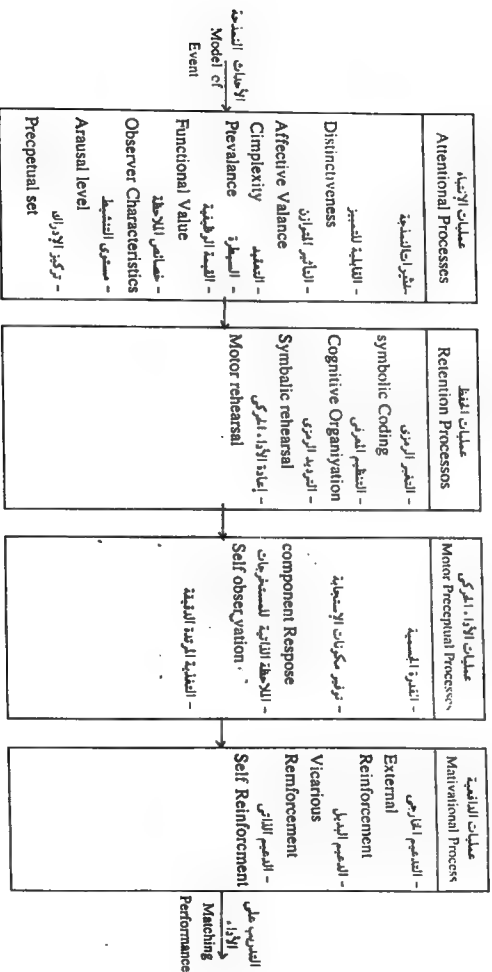 الأحداث النمذجة
Model of
Event
عمليات الانتباه
Attentional Processes
- القابلية للتمييز
Distinctiveness
- التأثير المتوازن
Affective Valance
- التعقيد
Cimplexity
- السيطرة
Ptevalance
- القيمة الوظيفية
Functional Value
- خصائص الملاحظة
Observer Characteristics
- مستوى التنشيط
Arausal level
- تركيز الإدراك
Precpetual set
عمليات الحفظ
Retention Processos
- التغير الرمزى
symbolic Coding
- التنظيم المعرفى
Cognitive Organiyation
- الترديد الرمزى
Symbalic rehearsal
- إعادة الأداء الحركى
Motor rehearsal
عمليات الأداء الحركى
Motor Preceptual Processes
- القدرة الجسمية
- توفير مكونات الإستجابة
component Respose
- اللاحظة الذاتية للمستخرجات
Self observation
- التغذية المرتدة الدقيقة
عمليات الدافعية
Mativational Process
- التدعيم الخارجى
External
Reinforcement
- الدعيم البديل
Vicarious
Remforcement
- الدعيم الذاتى
Self Reinforcment
التدريب على
الأداء
Matching
Performance